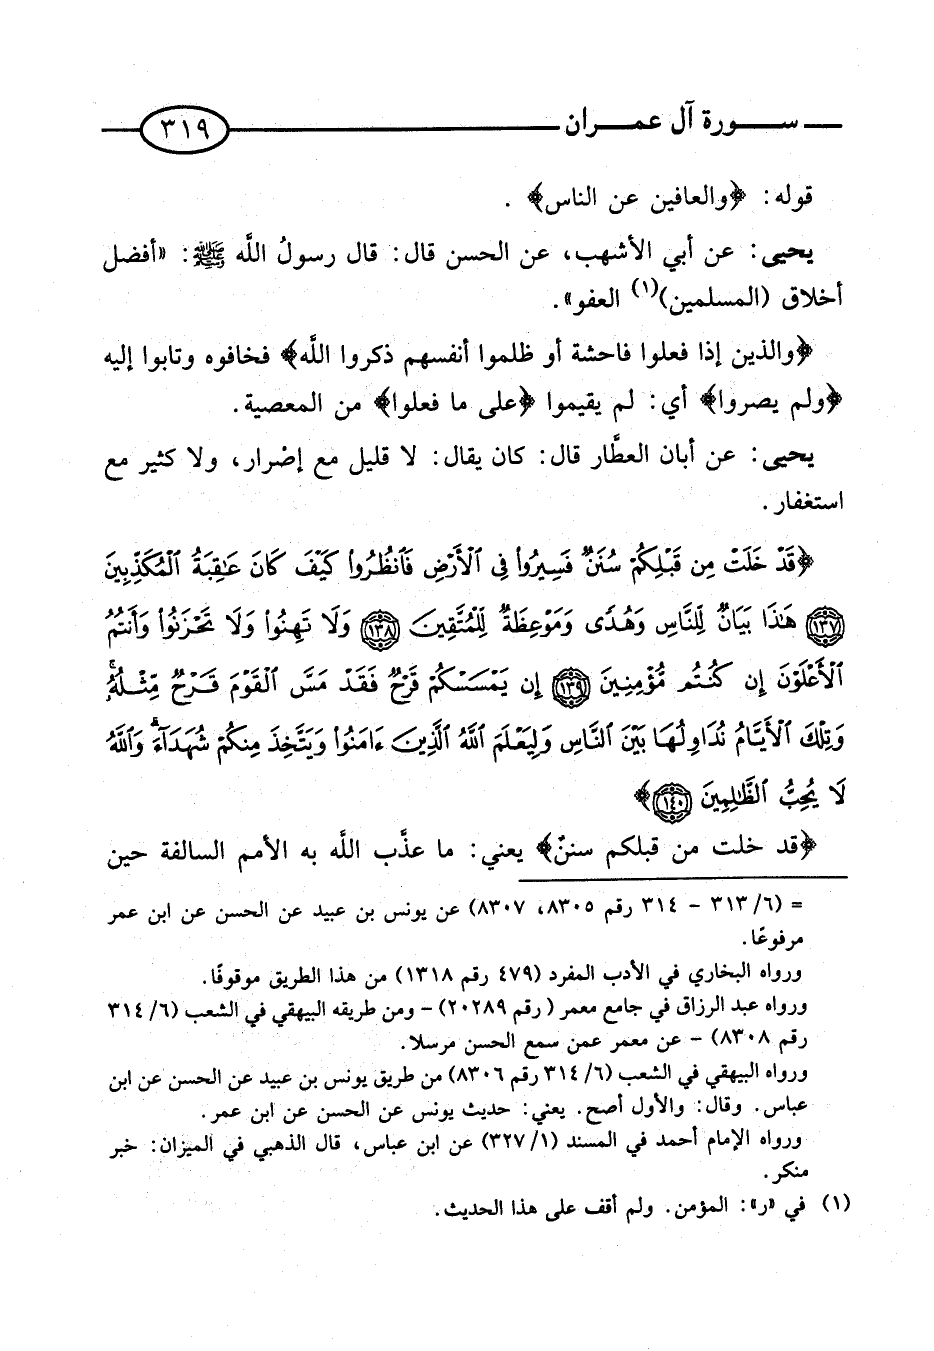 سورة آل عمران ٣١٩
قوله: ﴿والعافين عن الناس﴾ .
يحيى: عن أبي الأشهب، عن الحسن قال: قال رسولُ اللَّه ﷺ: «أفضل
أخلاق (المسلمين)(١) العفو».
﴿والذين إذا فعلوا فاحشة أو ظلموا أنفسهم ذكروا اللَّه﴾ فخافوه وتابوا إليه
﴿ولم يصروا﴾ أي: لم يقيموا ﴿على ما فعلوا﴾ من المعصية.
يحيى: عن أبان العطَّار قال: كان يقال: لا قليل مع إصْرار، ولا كثير مع
استغفار.
﴿قَدْ خَلَتْ مِن قَبْلِكُمْ سُنَنٌ فَسِيرُوا۟ فِى ٱلْأَرْضِ فَٱنظُرُوا۟ كَيْفَ كَانَ عَـٰقِبَةُ ٱلْمُكَذِّبِينَ
١٣٧ هَـٰذَا بَيَانٌ لِّلنَّاسِ وَهُدًى وَمَوْعِظَةٌ لِّلْمُتَّقِينَ ١٣٨ وَلَا تَهِنُوا۟ وَلَا تَحْزَنُوا۟ وَأَنتُمُ
ٱلْأَعْلَوْنَ إِن كُنتُم مُّؤْمِنِينَ ١٣٩ إِن يَمْسَسْكُمْ قَرْحٌ فَقَدْ مَسَّ ٱلْقَوْمَ قَرْحٌ مِّثْلُهُۥ ۚ
وَتِلْكَ ٱلْأَيَّامُ نُدَاوِلُهَا بَيْنَ ٱلنَّاسِ وَلِيَعْلَمَ ٱللَّهُ ٱلَّذِينَ ءَامَنُوا۟ وَيَتَّخِذَ مِنكُمْ شُهَدَآءَ ۗ وَٱللَّهُ
لَا يُحِبُّ ٱلظَّـٰلِمِينَ ١٤٠﴾
﴿قد خلت من قبلكم سننٌ﴾ يعني: ما عذَّب اللَّه به الأمم السالفة حين
= (٦/ ٣١٣ - ٣١٤ رقم ٨٣٠٥، ٨٣٠٧) عن يونس بن عبيد عن الحسن عن ابن عمر
مرفوعًا.
ورواه البخاري في الأدب المفرد (٤٧٩ رقم ١٣١٨) من هذا الطريق موقوفًا.
ورواه عبد الرزاق في جامع معمر ( رقم ٢٠٢٨٩) - ومن طريقه البيهقي في الشعب (٦/ ٣١٤
رقم ٨٣٠٨) - عن معمر عمن سمع الحسن مرسلا.
ورواه البيهقي في الشعب (٦/ ٣١٤ رقم ٨٣٠٦) من طريق يونس بن عبيد عن الحسن عن ابن
عباس. وقال: والأول أصح. يعني: حديث يونس عن الحسن عن ابن عمر.
ورواه الإمام أحمد في المسند (١/ ٣٢٧) عن ابن عباس، قال الذهبي في الميزان: خبر
منكر.
(١) في «ر»: المؤمن. ولم أقف على هذا الحديث.